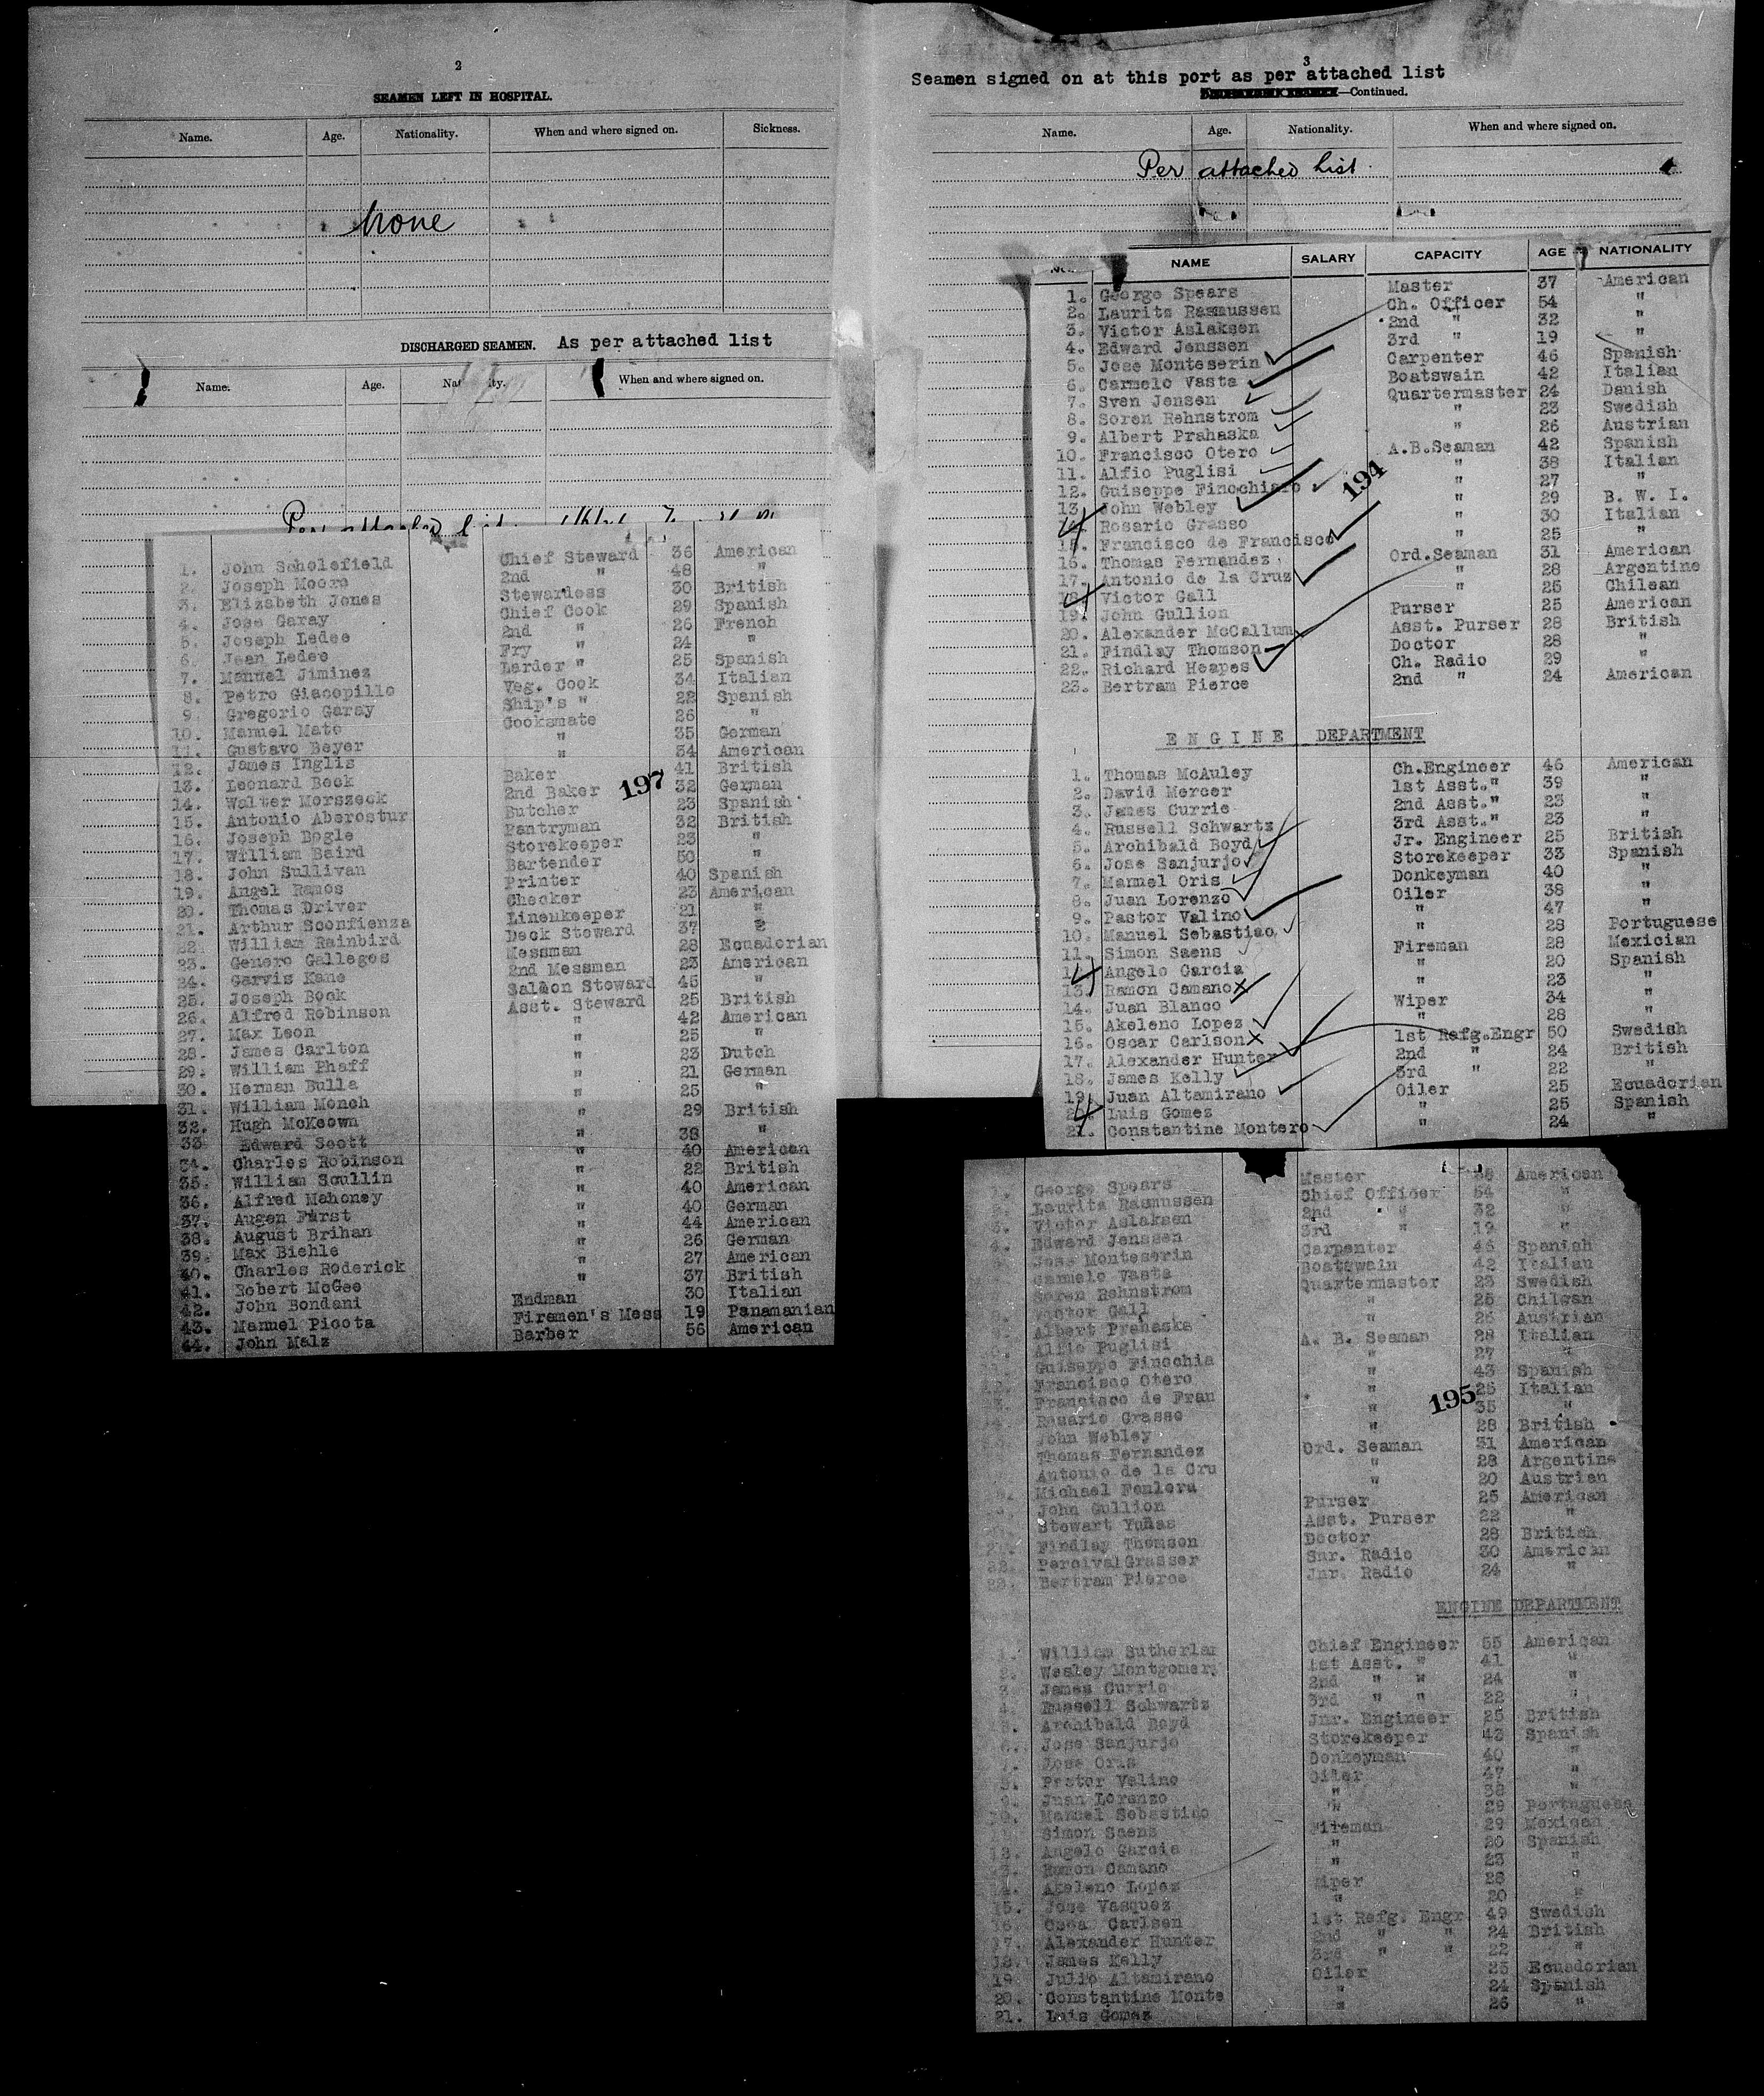 2
SEAMEN LEFT IN HOSPITAL.
Name. Age. Nationality. When and where signed on. Sickness.
None
DISCHARGED SEAMEN. As per attached list
Name. Age. When and where signed on.
Per attached
1. John Scholefield Chief Steward 36 American
2. Joseph Moore 2nd " 48 "
3. Elizabeth Jones Stewardess 30 British
4. Jose Garay Chief Cook 29 Spanish
5. Joseph Ledee 2nd " 26 French
6. Jean Ledee Fry " 24 "
7. Manuel Jiminez Larder " 25 Spanish
8. Petro Giacopillo Veg. Cook 34 Italian
9. Gregorio Garay Ship's " 22 Spanish
10. Manuel Mato Cooksmate 26 "
11. Gustavo Beyer " 35 German
12. James Inglis " 34 American
13. Leonard Beck Baker 41 British
14. Walter Morszeck 2nd Baker 32 German
15. Antonio Aberostur Butcher 23 Spanish
16. Joseph Bogle Pantryman 32 British
17. William Baird Storekeeper 23 "
18. John Sullivan Bartender 50 "
19. Angel Ramos Printer 40 Spanish
20. Thomas Driver Checker 23 American
21. Arthur Sconfienza Linenkeeper 21 "
22. William Rainbird Deck Steward 37 "
23. Genero Gallegos Messman 28 Ecuadorian
24. Garvis Kane 2nd Messman 23 American
25. Joseph Bock Saloon Steward 45 "
26. Alfred Robinson Asst. Steward 25 British
27. Max Leon " 42 American
28. James Carlton " 25 "
29. William Phaff " 23 Dutch
30. Herman Bulla " 21 German
31. William Monch " 25 "
32. Hugh McKeown " 29 British
33 Edward Scott " 38 "
34. Charles Robinson " 40 American
35. William Scullin " 22 British
36. Alfred Mahoney " 40 American
37. Augen Fürst " 40 German
38. August Brihan " 44 American
39. Max Biehle " 26 German
40. Charles Roderick " 27 American
41. Robert McGee " 37 British
42. John Bondani Endman 30 Italian
43. Manuel Picota Firemen's Mess 19 Panamanian
44. John Malz Barber 56 American
197
3
Seamen signed on at this port as per attached list
—Continued.
Name. Age. Nationality. When and where signed on.
Per attached list.
NAME SALARY CAPACITY AGE NATIONALITY
1. George Spears Master 37 American
2. Laurits Rasmussen Ch. Officer 54 "
3. Victor Aslaksen 2nd " 32 "
4. Edward Jenssen 3rd " 19 "
5. Jose Monteserin Carpenter 46 Spanish
6. Carmelo Vasta Boatswain 42 Italian
7. Sven Jensen Quartermaster 24 Danish
8. Soren Rehnstrom " 23 Swedish
9. Albert Prahaska " 26 Austrian
10. Francisco Otero A.B.Seaman 42 Spanish
11. Alfio Puglisi " 38 Italian
12. Guiseppe Finochiaro " 27 "
13. John Webley " 29 B. W. I.
14. Rosario Grasso " 30 Italian
15. Francisco de Francisco " 25 "
16. Thomas Fernandez Ord.Seaman 31 American
17. Antonio de la Cruz " 28 Argentine
18. Victor Gall " 25 Chilean
19. John Gullion Purser 25 American
20. Alexander McCallum Asst. Purser 28 British
21. Findlay Thomson Doctor 28 "
22. Richard Heapes Ch. Radio 29 "
23. Bertram Pierce 2nd " 24 American
194
ENGINE DEPARTMENT
1. Thomas McAuley Ch.Engineer 46 American
2. David Mercer 1st Asst." 39 "
3. James Currie 2nd Asst." 23 "
4. Russell Schwartz 3rd Asst." 23 "
5. Archibald Boyd Jr. Engineer 25 British
6. Jose Sanjurjo Storekeeper 33 Spanish
7. Manuel Oris Donkeyman 40 "
8. Juan Lorenzo Oiler 38 "
9. Pastor Valino " 47 "
10. Manuel Sebastiao " 28 Portuguese
11. Simon Saens Fireman 28 Mexician
12. Angelo Garcia " 20 Spanish
13. Ramon Camano " 23 "
14. Juan Blanco Wiper 34 "
15. Akeleno Lopez " 28 "
16. Oscar Carlson 1st Refg.Engr 50 Swedish
17. Alexander Hunter 2nd " 24 British
18. James Kelly 3rd " 22 "
19. Juan Altamirano Oiler 25 Ecuadorian
20. Luis Gomez " 25 Spanish
21. Constantine Montero " 24 "
George Spears Master 38 American
Laurits Rasmussen Chief Officer 54 "
Victor Aslaksen 2nd " 32 "
4. Edward Jenssen 3rd " 19 "
Jose Monteserin Carpenter 46 Spanish
Carmelo Vasta Boatswain 42 Italian
Soren Rehnstrom Quartermaster 23 Swedish
Victor Gall " 25 Chilean
Albert Prahaska " 26 Austrian
Alfio Puglisi A. B. Seaman 28 Italian
Guiseppe Finochia " 27 "
Francisco Otero " 43 Spanish
Francisco de Fran " 25 Italian
Rosario Grasso " 35 "
John Webley " 28 British
Thomas Fernandez Ord. Seaman 31 American
Antonio de la Cru " 28 Argentine
Michael " 20 Austrian
John Gullion Purser 25 American
Stewart Yuñas Asst. Purser 22 "
21. Findlay Thomson Doctor 28 British
22. Percival Grasser Snr. Radio 30 American
23. Bertram Pierce Jnr. Radio 24 "
195
ENGINE DEPARTMENT
1. William Sutherlan Chief Engineer 55 American
2. Wesley Montgomery 1st Asst. " 41 "
3. James Currie 2nd " " 24 "
4. Russell Schwartz 3rd " " 22 "
5. Archibald Boyd Jnr. Engineer 25 British
6. Jose Sanjurjo Storekeeper 43 Spanish
7. Jose Oris Donkeyman 40 "
8. Pastor Valino Oiler 47 "
9. Juan Lorenzo " 38 "
10. Manuel Sebastiao " 29 Portuguese
Simon Saenz Fireman 29 Mexican
12. Angelo Garcia " 20 Spanish
13. Ramon Camano " 23 "
14. Akeleno Lopez Wiper 28 "
15. Jose Vasquez " 20 "
16. Carlsen 1st Refg. Engr 49 Swedish
17. Alexander Hunter 2nd " " 24 British
18. James Kelly 3rd " " 22 "
19. Julio Altamirano Oiler 25 Ecuadorian
20. Constantine Monte " 24 Spanish
21. Luis Gomez " 26 "